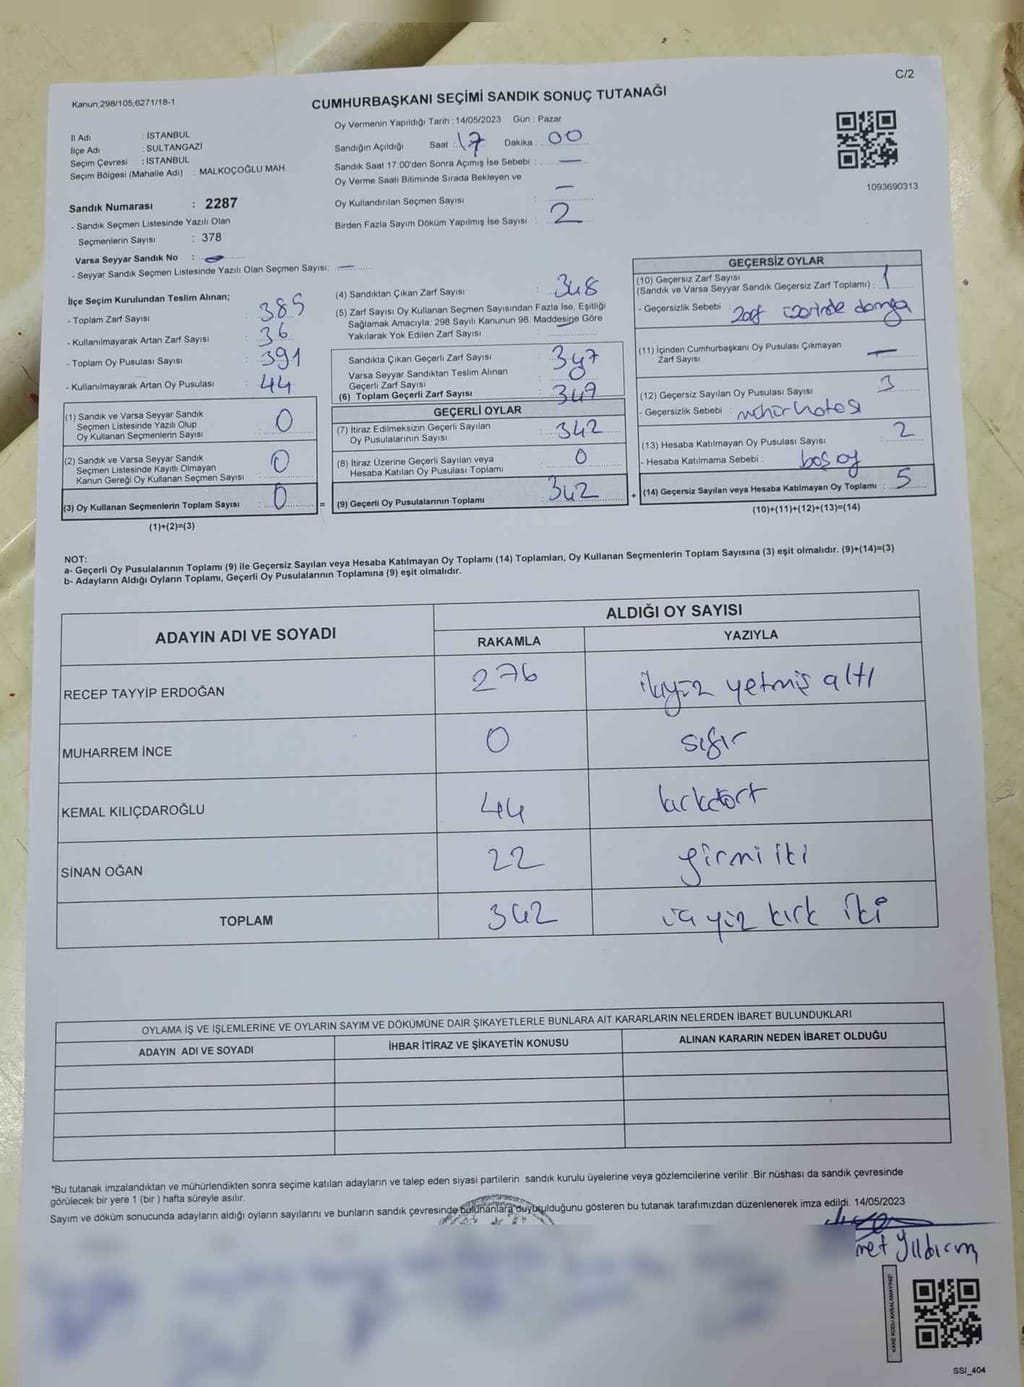 C/2
Kanun;298/105;6271/18-1
CUMHURBAŞKANI SEÇİMİ SANDIK SONUÇ TUTANAĞI
İl Adı : İSTANBUL
İlçe Adı : SULTANGAZİ
Seçim Çevresi : İSTANBUL
Seçim Bölgesi (Mahalle Adı) : MALKOÇOĞLU MAH.
Sandık Numarası : 2287
- Sandık Seçmen Listesinde Yazılı Olan
Seçmenlerin Sayısı : 378
Varsa Seyyar Sandık No :
- Seyyar Sandık Seçmen Listesinde Yazılı Olan Seçmen Sayısı: —
Oy Vermenin Yapıldığı Tarih :14/05/2023 Gün : Pazar
Sandığın Açıldığı Saat : 17 Dakika : 00
Sandık Saat 17:00'den Sonra Açımış İse Sebebi : —
Oy Verme Saati Bitiminde Sırada Bekleyen ve
Oy Kullandırılan Seçmen Sayısı : —
Birden Fazla Sayım Döküm Yapılmış İse Sayısı : 2
1093690313
İlçe Seçim Kurulundan Teslim Alınan;
- Toplam Zarf Sayısı : 385
- Kullanılmayarak Artan Zarf Sayısı : 36
- Toplam Oy Pusulası Sayısı : 391
- Kullanılmayarak Artan Oy Pusulası : 44
(1) Sandık ve Varsa Seyyar Sandık
Seçmen Listesinde Yazılı Olup
Oy Kullanan Seçmenlerin Sayısı : 0
(2) Sandık ve Varsa Seyyar Sandık
Seçmen Listesinde Kayıtlı Olmayan
Kanun Gereği Oy Kullanan Seçmen Sayısı : 0
(3) Oy Kullanan Seçmenlerin Toplam Sayısı : 0 =
(1)+(2)=(3)
(4) Sandıktan Çıkan Zarf Sayısı : 348
(5) Zarf Sayısı Oy Kullanan Seçmen Sayısından Fazla İse, Eşitliği
Sağlamak Amacıyla; 298 Sayılı Kanunun 98. Maddesine Göre
Yakılarak Yok Edilen Zarf Sayısı : —
Sandıkta Çıkan Geçerli Zarf Sayısı : 347
Varsa Seyyar Sandıktan Teslim Alınan
Geçerli Zarf Sayısı : 0
(6) Toplam Geçerli Zarf Sayısı :
GEÇERLİ OYLAR
(7) İtiraz Edilmeksizin Geçerli Sayılan
Oy Pusulalarının Sayısı : 342
(8) İtiraz Üzerine Geçerli Sayılan veya
Hesaba Katılan Oy Pusulası Toplamı : 0
(9) Geçerli Oy Pusulalarının Toplamı : 342 +
GEÇERSİZ OYLAR
(10) Geçersiz Zarf Sayısı
(Sandık ve Varsa Seyyar Sandık Geçersiz Zarf Toplamı) : 1
- Geçersizlik Sebebi : zarf üzerinde damga
(11) İçinden Cumhurbaşkanı Oy Pusulası Çıkmayan
Zarf Sayısı : —
(12) Geçersiz Sayılan Oy Pusulası Sayısı : 3
- Geçersizlik Sebebi : mühür hatası
(13) Hesaba Katılmayan Oy Pusulası Sayısı : 2
- Hesaba Katılmama Sebebi : boş oy
(14) Geçersiz Sayılan veya Hesaba Katılmayan Oy Toplamı : 5
(10)+(11)+(12)+(13)=(14)
NOT:
a- Geçerli Oy Pusulalarının Toplamı (9) ile Geçersiz Sayılan veya Hesaba Katılmayan Oy Toplamı (14) Toplamları, Oy Kullanan Seçmenlerin Toplam Sayısına (3) eşit olmalıdır. (9)+(14)=(3)
b- Adayların Aldığı Oyların Toplamı, Geçerli Oy Pusulalarının Toplamına (9) eşit olmalıdır.
ADAYIN ADI VE SOYADI ALDIĞI OY SAYISI
RAKAMLA YAZIYLA
RECEP TAYYİP ERDOĞAN 276 ikiyüz yetmiş altı
MUHARREM İNCE 0 sıfır
KEMAL KILIÇDAROĞLU 44 kırkdört
SİNAN OĞAN 22 yirmi iki
TOPLAM 342 üç yüz kırk iki
OYLAMA İŞ VE İŞLEMLERİNE VE OYLARIN SAYIM VE DÖKÜMÜNE DAİR ŞİKAYETLERLE BUNLARA AİT KARARLARIN NELERDEN İBARET BULUNDUKLARI
ADAYIN ADI VE SOYADI İHBAR İTİRAZ VE ŞİKAYETİN KONUSU ALINAN KARARIN NEDEN İBARET OLDUĞU
*Bu tutanak imzalandıktan ve mühürlendikten sonra seçime katılan adayların ve talep eden siyasi partilerin sandık kurulu üyelerine veya gözlemcilerine verilir. Bir nüshası da sandık çevresinde
görülecek bir yere 1 (bir ) hafta süreyle asılır.
Sayım ve döküm sonucunda adayların aldığı oyların sayılarını ve bunların sandık çevresinde bulunanlara duyurulduğunu gösteren bu tutanak tarafımızdan düzenlenerek imza edildi. 14/05/2023
met Yıldırım
KARE KODU KARALAMAYINIZ!
SSI_404